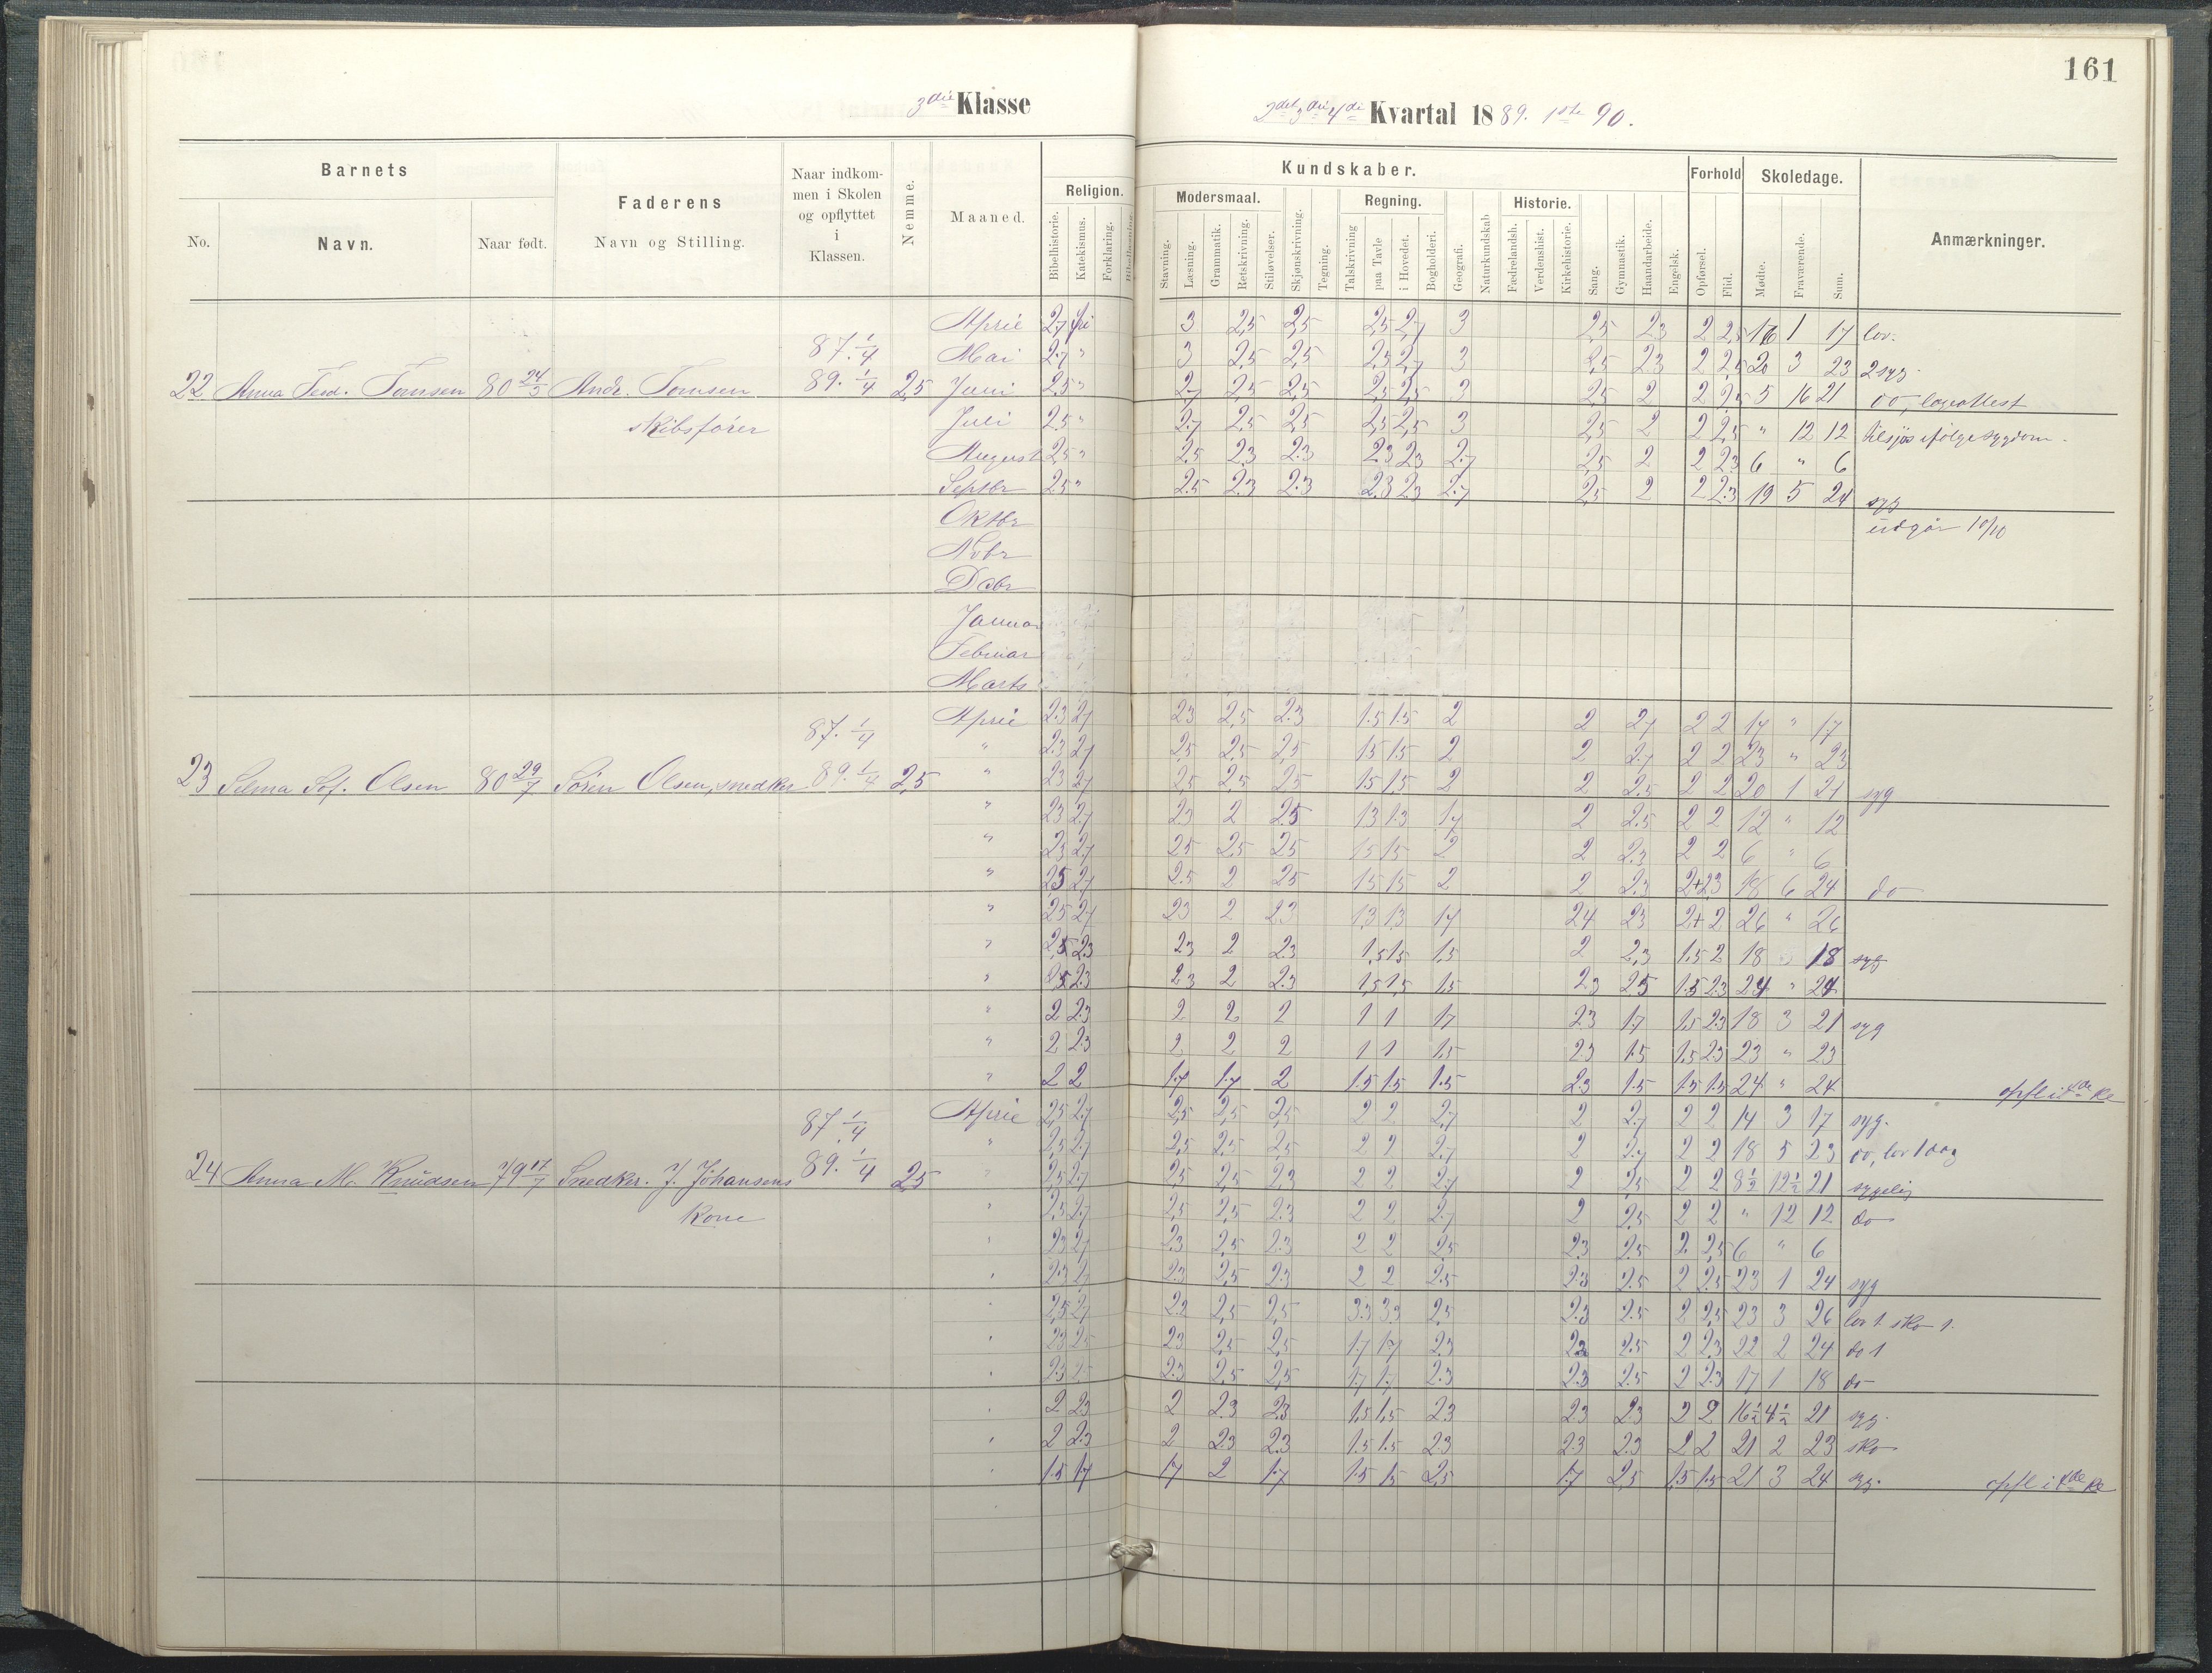 161
3die Klasse
2det 3die 4de Kvartal 1889. 1ste 90.
Barnets
No.
Navn.
Naar født.
Faderens
Navn og Stilling.
Naar indkom-
men i Skolen
og opflyttet
i
Klassen.
Nemme.
Maaned.
Kundskaber.
Religion.
Bibelhistorie.
Katekismus.
Forklaring.
Bibellæsning.
Modersmaal.
Stavning.
Læsning.
Grammatik.
Retskrivning.
Stiløvelser.
Skjønskrivning.
Tegning.
Regning.
Talskrivning
paa Tavle
i Hovedet.
Bogholderi.
Geografi.
Naturkundskab
Historie.
Fædrelandsh.
Verdenshist.
Kirkehistorie.
Sang.
Gymnastik.
Haandarbeide.
Engelsk.
Forhold
Opførsel.
Flid.
Skoledage.
Mødte.
Fraværende.
Sum.
Anmærkninger.
April 2.7 fri 3 2,5 2,5 2,5 2,7 3 2,5 2,3 2 2,5 16 1 17 lov.
87. 1/4
Mai 2.7 " 3 2,5 2,5 2,5 2,7 3 2,5 2,3 2 2,5 20 3 23 2 syg.
22 Anna Ferd. Tomsen 80 24/5 Andr. Tomsen 89. 1/4 2,5 Juni 2.5 " 2,7 2,5 2,5 2,5 2,5 3 2,5 2 2 2,5 5 16 21 do, lægeattest
skibsfører Juli 2.5 " 2.7 2,5 2,5 2,5 2,5 3 2,5 2 2 2,5 " 12 12 tilsjøs ifølge sygdom.
August 2,5 " 2,5 2,3 2.3 2.3 2.3 2.7 2,5 2 2 2.3 6 " 6
Septbr 2.5 " 2.5 2.3 2.3 2.3 2.3 2.7 2,5 2 2 2.3 19 5 24 syg
Oktbr udgår 10/10
Novbr
Decbr
Januar
Februar
Marts
April 2.3 2.7 2.3 2,5 2.3 1.5 1.5 2 2 2,7 2 2 17 " 17
87. 1/4
" 2.3 2.7 2,5 2,5 2,5 1.5 1.5 2 2 2.7 2 2 23 " 23
23 Selma Sof. Olsen 80 29/7 Søren Olsen, snedker 89. 1/4 2,5 " 2.3 2.7 2,5 2,5 2,5 1.5 1.5 2 2 2.5 2 2 20 1 21 syg
" 2.3 2.7 2.3 2 2.5 1.3 1.3 1.7 2 2.5 2 2 12 " 12
" 2.3 2.7 2.5 2.5 2.5 1.5 1.5 2 2 2.3 2 2 6 " 6
" 2.5 2.7 2.5 2 2.5 1.5 1.5 2 2 2.3 2+ 2.3 18 6 24 do
" 2.5 2.7 2.3 2 2.3 1.3 1.3 1.7 2.4 2.3 2+ 2 26 " 26
" 2.5 2.3 2.3 2 2.3 1,5 1.5 1.5 2 2,3 1.5 2 18 18 syg
" 2.5 2.3 2.3 2 2.3 1,5 1,5 1.5 2.3 2.5 1.5 2.3 24 " 24
" 2 2.3 2 2 2 1 1 1.7 2.3 1.7 1.5 2.3 18 3 21 syg
" 2 2.3 2 2 2 1 1 1.5 2.3 1.5 1.5 2.3 23 " 23
" 2 2 1.7 1.7 2 1.5 1.5 1.5 2.3 1.5 1.5 1.5 24 " 24 opfl i 4de Kl
April 2,5 2.7 2,5 2,5 2,5 2 2 2.7 2 2.7 2 2 14 3 17 syg.
87 1/4
" 2,5 2.7 2,5 2,5 2,5 2 2 2.7 2 2.7 2 2 18 5 23 do, lov 1 dag
24 Anna M. Knudsen 79 17/7 Snedker. J. Johansens 89. 1/4 2,5 " 2,5 2.7 2,5 2,5 2,3 2 2 2.7 2 2,5 2 2 8 1/2 12 1/2 21 sygelig
Kone " 2.5 2.7 2.5 2.5 2.3 2 2 2.7 2 2.5 2 2 " 12 12 do
" 2.3 2.7 2.3 2,5 2.3 2 2 2.5 2.3 2.5 2 2,5 6 " 6
" 2.3 2.7 2.3 2,5 2.3 2 2 2.5 2.3 2.5 2 2.5 23 1 24 syg
" 2,5 2.7 2.2 2,5 2,5 3.3 3.3 2.5 2.3 2.5 2 2,5 23 3 26 lov 1. sko 1.
" 2.3 2.5 2.3 2,5 2,5 1.7 1.7 2.3 2.3 2.5 2 2.3 22 2 24 do 1
" 2.3 2.5 2.3 2,5 2,5 1.7 1.7 2.3 2.3 2.5 2 2.3 17 1 18 do
" 2 2.3 2 2.3 2.3 1.5 1.5 2.3 2.3 2.3 2 2 16 1/2 4 1/2 21 syg.
" 2 2.3 2 2.3 2.3 1.5 1.5 2.3 2.3 2.3 2 2 21 2 23 sko
" 1.5 1.7 1.7 2 1.7 1.5 1.5 2,5 1.7 2,5 1,5 1.5 21 3 24 syg. opfl i 4de Kl